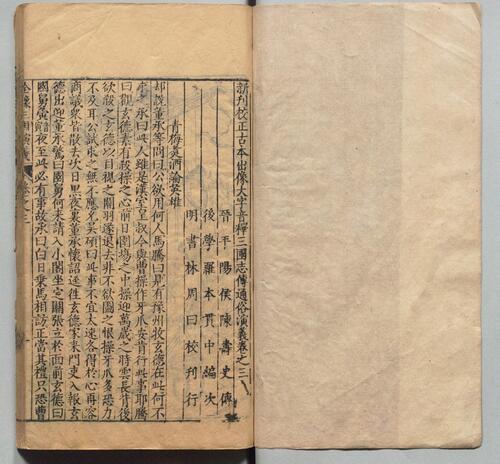 新刊校正古本出像大字音釋三國志傳通俗演義卷之三
晉平陽侯陳壽史傳
後學羅本貫中編次
明書林周曰校刊行
青梅煑酒論英雄
却說董承等問曰公欲用何人馬騰曰見有豫州牧玄德在此何不
求之承曰此人雖是漢室皇叔今與曹操作牙爪安肯行此事耶騰
曰觀玄德素有殺操之心前日圍塲之中操迎萬歲之時雲長背後
欲殺之玄德以目視之關羽遂退去非不欲圖之恨操牙爪多恐力
不及耳公試求之無不應允吳碩曰此事不宜太速各得於心再容
商議衆皆散去次日黑夜裏董承懷詔逕往玄德家來門吏入報玄
德出迎董承驚曰國舅何來請入小閣坐定關張立於面前玄德曰
國舅夤暗夜至此必有事故承曰白日乗馬相訪正當其禮只恐曹
全像三國演義 卷之三